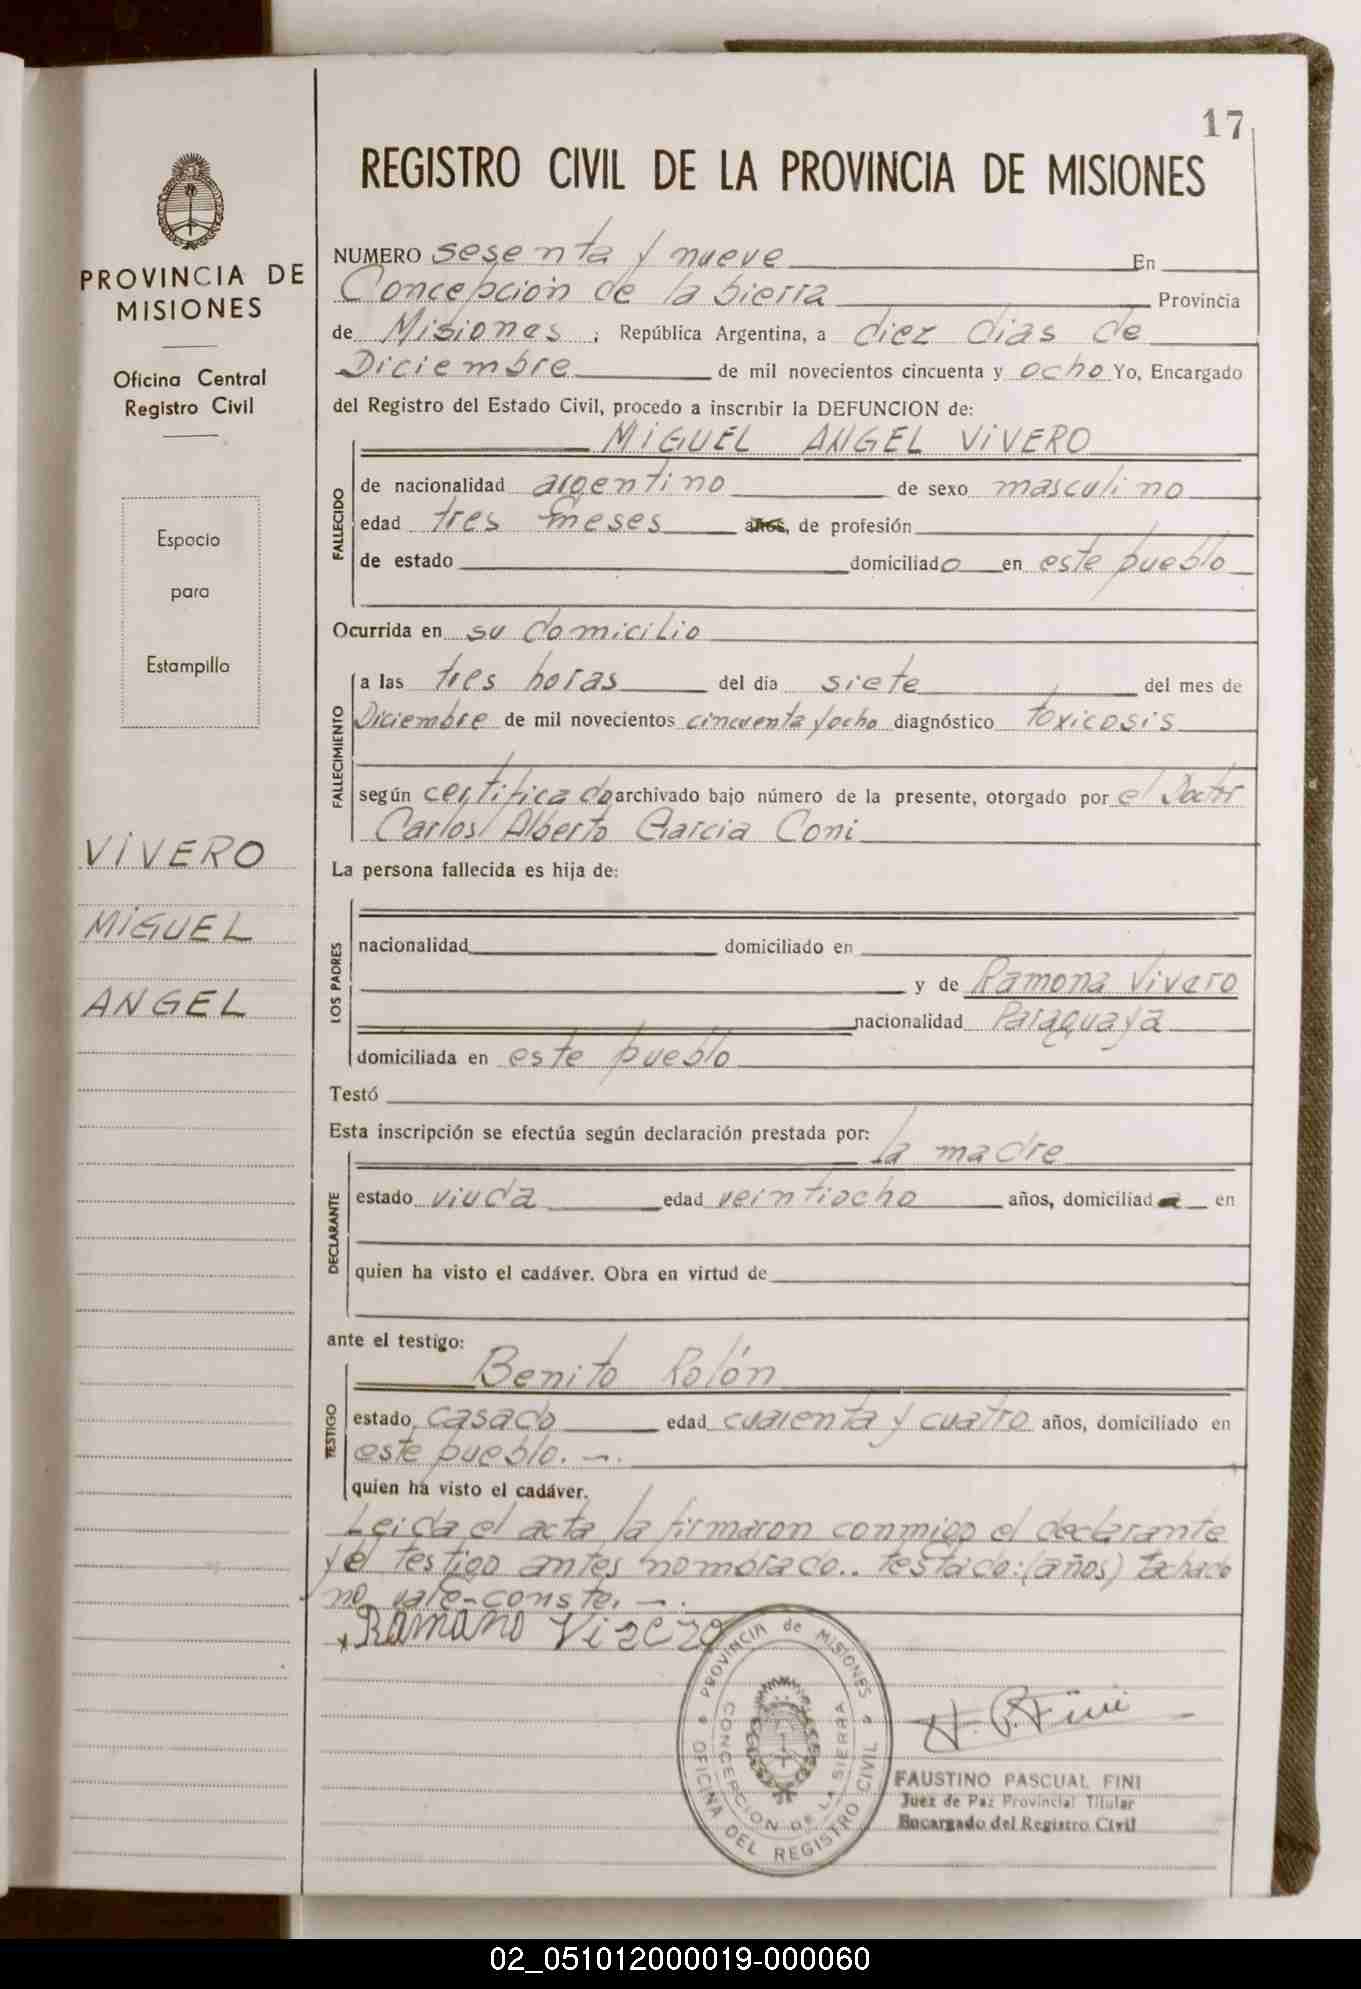 17
REGISTRO CIVIL DE LA PROVINCIA DE MISIONES
PROVINCIA DE
MISIONES
Oficina Central
Registro Civil
Espacio
para
Estampilla
VIVERO
MIGUEL
ANGEL
NUMERO sesenta y nueve En
Concepción de la Sierra Provincia
de Misiones ; República Argentina, a diez dias de
Diciembre de mil novecientos cincuenta y ocho Yo, Encargado
del Registro del Estado Civil, procedo a inscribir la DEFUNCION de:
MIGUEL ANGEL VIVERO
FALLECIDO
de nacionalidad argentino de sexo masculino
edad tres meses años, de profesión
de estado domiciliado en este pueblo
Ocurrida en su domicilio
FALLECIMIENTO
a las tres horas del día siete del mes de
Diciembre de mil novecientos cincuenta y ocho diagnóstico toxicosis
según certificado archivado bajo número de la presente, otorgado por el Doctor
Carlos Alberto Garcia Coni
La persona fallecida es hija de:
LOS PADRES
nacionalidad domiciliado en
y de Ramona Vivero
nacionalidad Paraguaya
domiciliada en este pueblo
Testó
Esta inscripción se efectúa según declaración prestada por:
la madre
DECLARANTE
estado viuda edad veintiocho años, domiciliada en
quien ha visto el cadáver. Obra en virtud de
ante el testigo:
Benito Rolón
TESTIGO
estado casado edad cuarenta y cuatro años, domiciliado en
este pueblo. -.
quien ha visto el cadáver.
Leida el acta la firmaron conmigo el declarante
y el testigo antes nombrado.. testado: (años) tachado
no vale-conste. -.
Ramano Vizezo
PROVINCIA de MISIONES
OFICINA DEL REGISTRO CIVIL
CONCEPCION DE LA SIERRA
F. P. Fini
FAUSTINO PASCUAL FINI
Juez de Paz Provincial Titular
Encargado del Registro Civil
02_051012000019-000060